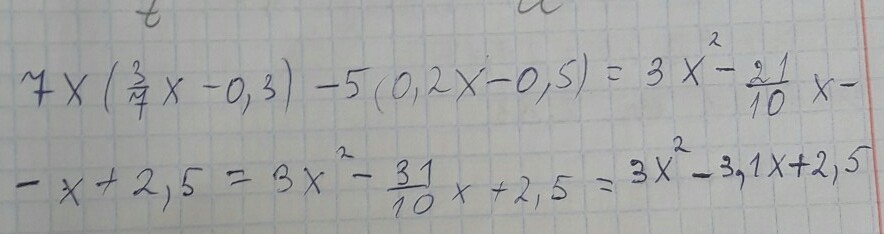 7x(3/7x - 0,3) - 5(0,2x - 0,5) = 3x² - 21/10 x -
- x + 2,5 = 3x² - 31/10 x + 2,5 = 3x² - 3,1x + 2,5